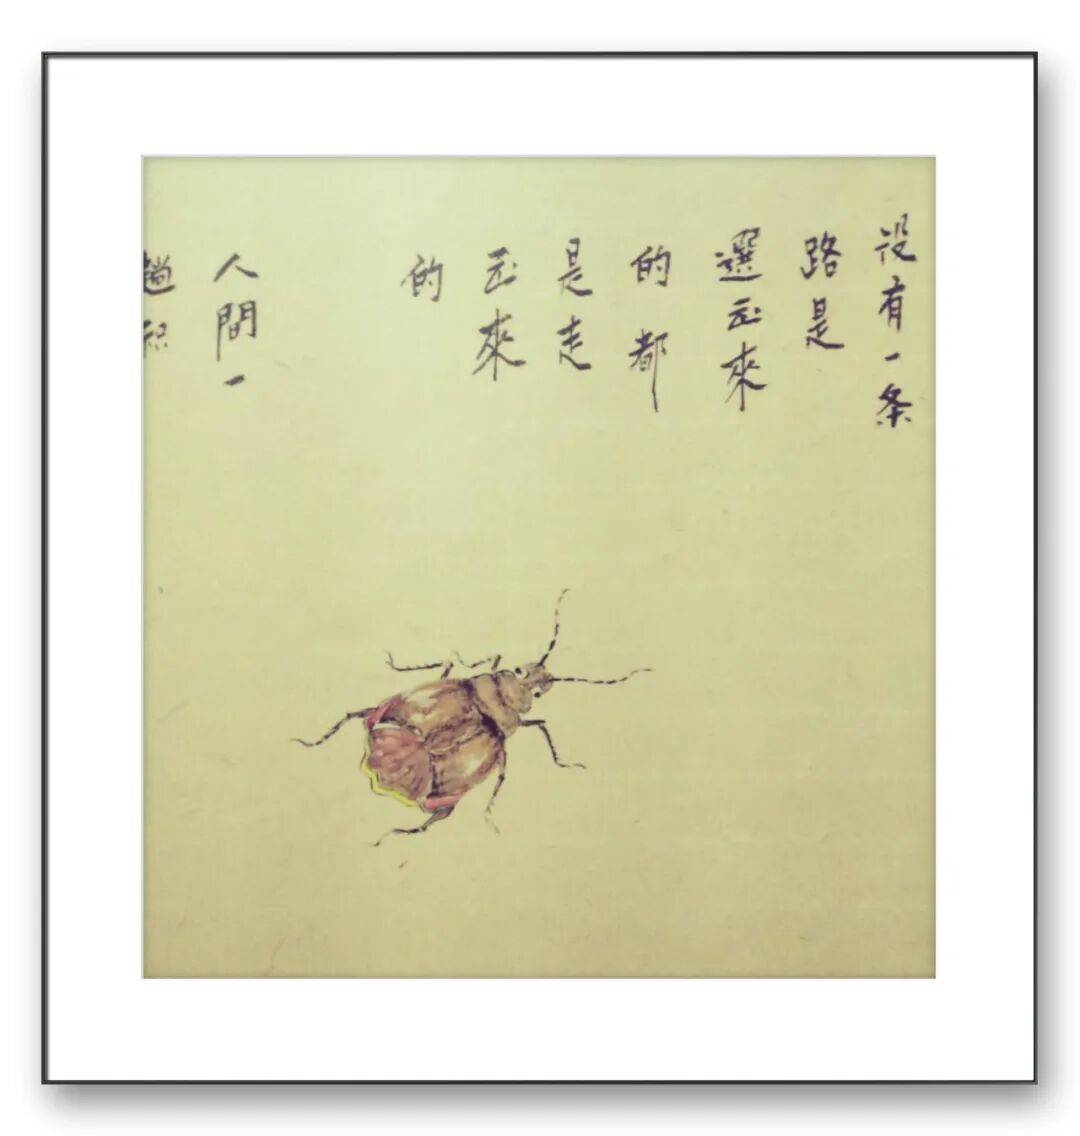 没有一条
路是
選出來
的都
是走
出來
的
人間一
趟